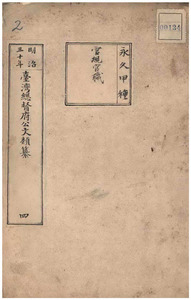 2
永久甲種
官規官職
明治
三十年
臺灣總督府公文類纂
四